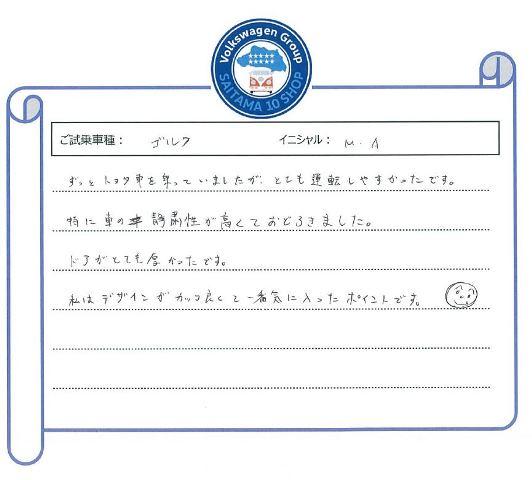 Volkswagen Group
SAITAMA 10 SHOP
ご試乗車種： ゴルフ イニシャル： M.A
ずっとトヨタ車を乗っていましたが、とても運転しやすかったです。
特に車の静粛性が高くておどろきました。
ドアがとても厚かったです。
私はデザインがカッコ良くて一番気に入ったポイントです。